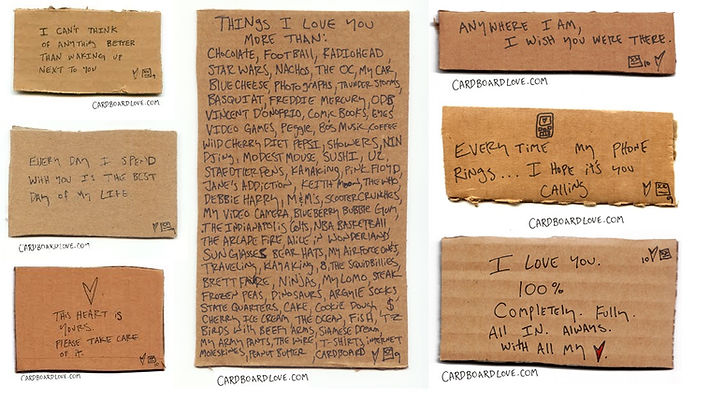 I CAN'T THINK
OF ANYTHING BETTER
THAN WAKING UP
NEXT TO YOU
CARDBOARDLOVE.COM
EVERY DAY I SPEND
WITH YOU IS THE BEST
DAY OF MY LIFE
CARDBOARDLOVE.COM
THIS HEART IS
YOURS.
PLEASE TAKE CARE
OF IT.
CARDBOARDLOVE.COM
THINGS I LOVE YOU
MORE THAN:
CHOCOLATE, FOOTBALL, RADIOHEAD
STAR WARS, NACHOS, THE OC, MY CAR,
BLUE CHEESE, PHOTOGRAPHS, THUNDER STORMS,
BASQUIAT, FREDDIE MERCURY, ODB
VINCENT D'ONOFRIO, COMIC BOOKS, EMES
VIDEO GAMES, PEGGLE, 80'S MUSIC, COFFEE
WILD CHERRY DIET PEPSI, SHOWERS, NIN
DJING, MODEST MOUSE, SUSHI, U2,
STAEDTLER PENS, KAYAKING, PINK FLOYD
JANE'S ADDICTION, KEITH MOON, THE WHO,
DEBBIE HARRY, M&M'S, SCOOTER CRUNCHES,
MY VIDEO CAMERA, BLUEBERRY BUBBLE GUM,
THE INDIANAPOLIS COLTS, NBA BASKETBALL
THE ARCADE FIRE, ALICE IN WONDERLAND
SUNGLASSES, BEAR HATS, MY AIR FORCE ONES,
TRAVELING, KAYAKING, 8, THE SQUIDBILLIES,
BRETT FAVRE, NINJAS, MY LOMO, STEAK
FROZEN PEAS, DINOSAURS, ARGYLE SOCKS
STATE QUARTERS, CAKE, COOKIE DOUGH, $
CHERRY ICE CREAM, THE OCEAN, FISH, T2
BIRDS WITH BEEFY ARMS, SIAMESE DREAM,
MY ARMY PANTS, THE WIRE, T-SHIRTS, INTERNET
MOLESKINES, PEANUT BUTTER CARDBOARD 9
CARDBOARDLOVE.COM
ANYWHERE I AM,
I WISH YOU WERE THERE.
10
CARDBOARDLOVE.COM
EVERY TIME MY PHONE
RINGS... I HOPE IT'S YOU
CALLING
CARDBOARDLOVE.COM
I LOVE YOU.
10
100%
COMPLETELY. FULLY.
ALL IN. ALWAYS.
WITH ALL MY
CARDBOARDLOVE.COM